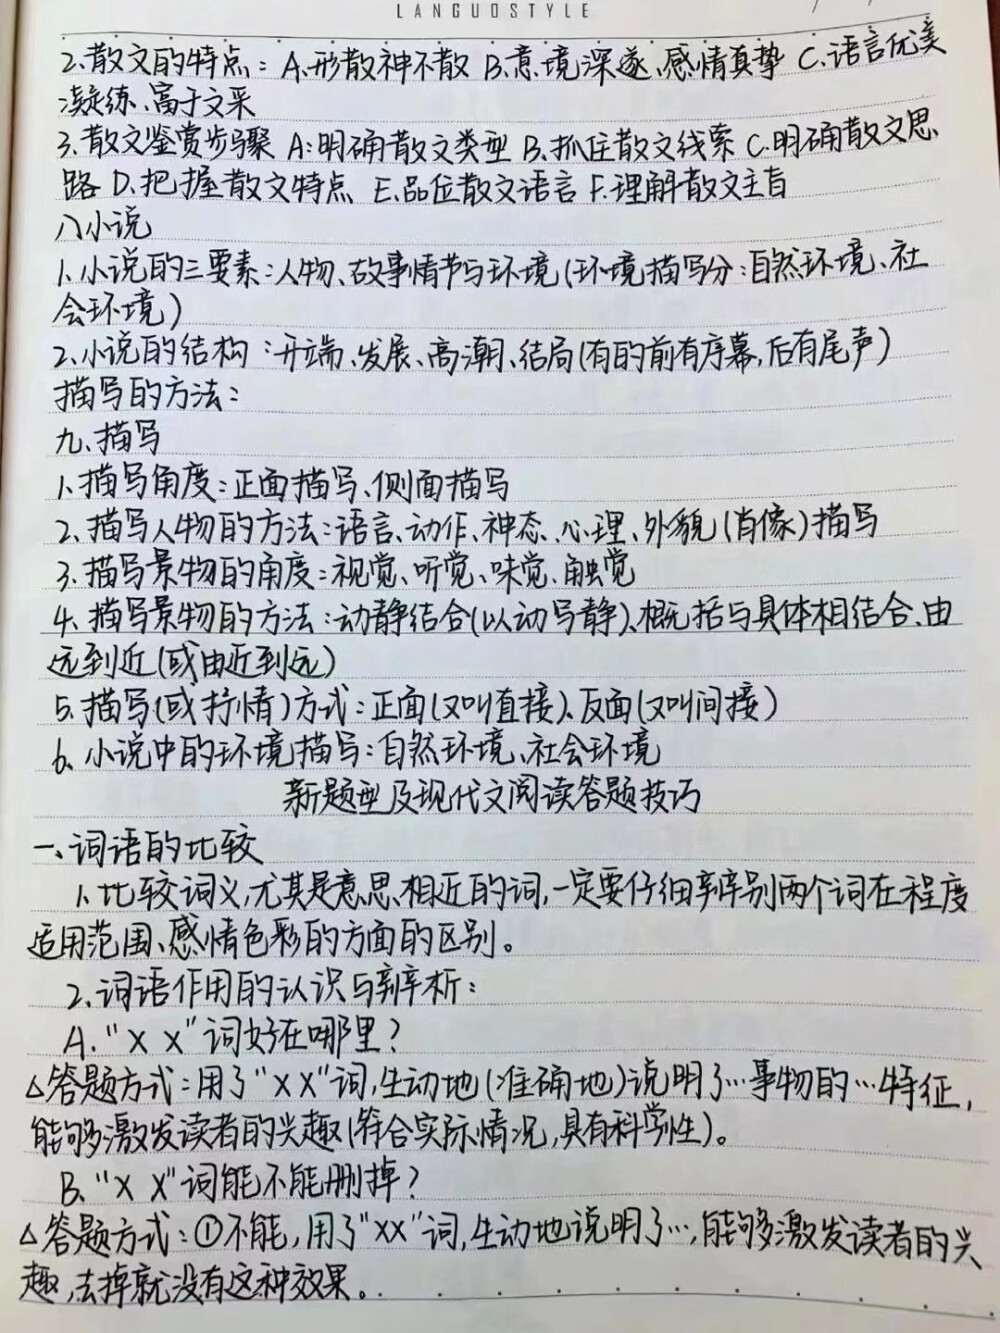 LANGUOSTYLE
2.散文的特点：A.形散神不散 B.意境深邃、感情真挚 C.语言优美
凝练、富于文采
3.散文鉴赏步骤 A:明确散文类型 B.抓住散文线索 C.明确散文思
路 D.把握散文特点 E.品位散文语言 F.理解散文主旨
八小说
1.小说的三要素：人物、故事情节与环境(环境描写分：自然环境、社
会环境)
2.小说的结构：开端、发展、高潮、结局(有的前有序幕,后有尾声)
描写的方法：
九.描写
1.描写角度：正面描写、侧面描写
2.描写人物的方法：语言、动作、神态、心理、外貌(肖像)描写
3.描写景物的角度：视觉、听觉、味觉、触觉
4.描写景物的方法：动静结合(以动写静)、概括与具体相结合、由
远到近(或由近到远)
5.描写(或抒情)方式：正面(又叫直接)、反面(又叫间接)
6.小说中的环境描写：自然环境、社会环境
新题型及现代文阅读答题技巧
一、词语的比较
1.比较词义,尤其是意思相近的词,一定要仔细辨别两个词在程度
适用范围、感情色彩的方面的区别。
2.词语作用的认识与辨析：
A."X X"词好在哪里？
△答题方式：用了"XX"词,生动地(准确地)说明了…事物的…特征,
能够激发读者的兴趣(符合实际情况,具有科学性)。
B."X X"词能不能删掉？
△答题方式：①不能,用了"XX"词,生动地说明了…,能够激发读者的兴
趣,去掉就没有这种效果。